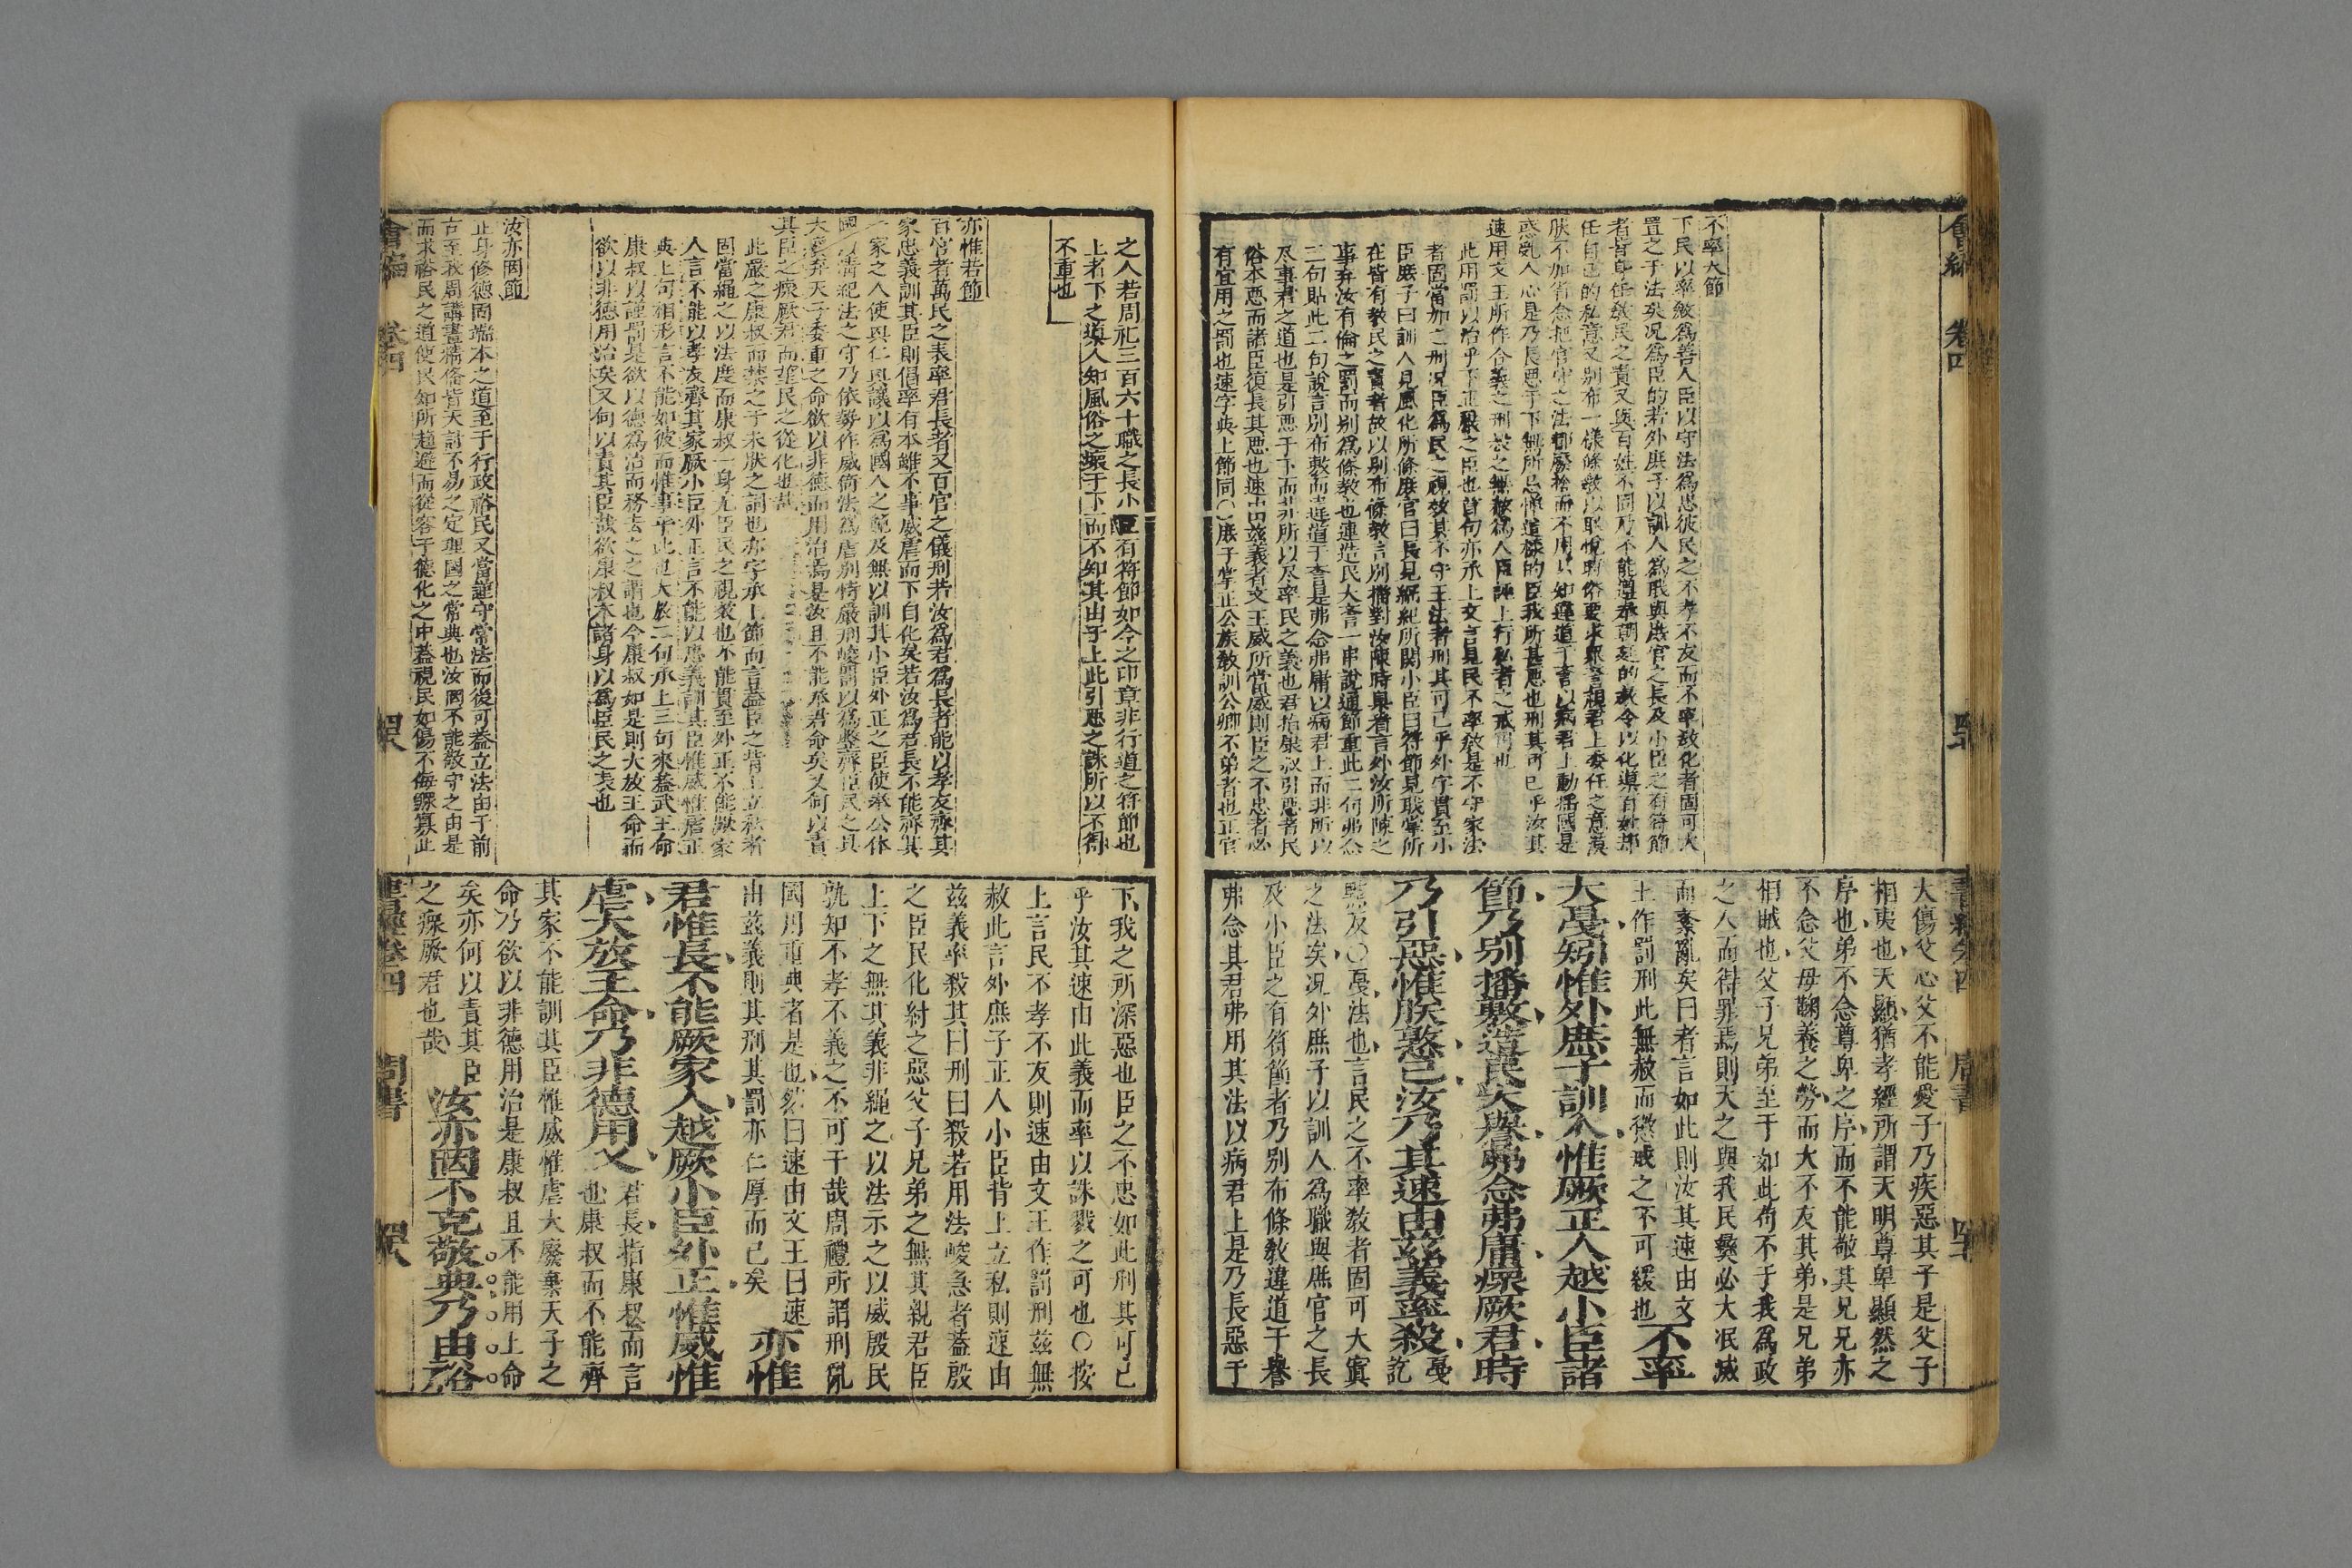 不率大節
下民以率敎爲善人臣以守法爲忠彼民之不孝不友而不率敎化者固可大
置之于法矣况爲臣的若外庶子以訓人爲職與庶官之長及小臣之有符節
者皆身任敎民之責又與百姓不同乃不能遵承朝廷的敎令以化導百姓却
任自己的私意又别布一樣條敎以取悅時俗要求衆譽視君上委任之意漠
肰不加省念把官守之法都廢格而不用
惑亂人心是乃長惡于下無所忌憚這樣的臣我所甚惡也刑其可已乎汝其
速用文王所作合義之刑
此用罰以治乎下正厥之臣也首句亦承上文言見民不率敎是不守家法
者固當加之刑况臣爲民之視效其不守王法者刑其可已乎外字貫至小
臣庶子曰訓人見風化所係庶官曰長見綱紀所関小臣曰符節見職掌所
在皆有敎民之責者故以别布條敎言
事弃汝有倫之罰而别爲條敎也連造民大譽一串說通節重此二句弗念
二句貼此二句說言别布敷而違道于譽是弗念弗庸以病君上而非所以
尽事君之道也是引惡于下而非所以尽率民之義也
俗本惡而諸臣復長其惡也速由茲義者文王威所當威則臣之不忠者必
有宜用之罰也速字與上節同〇庶子掌正公族敎訓公卿不弟者也正官
會編 卷四
大傷父心父不能愛子乃疾惡其子是父子
相夷也天顯猶孝經所謂天明尊卑顯然之
序也弟不念尊卑之序而不能敬其兄兄亦
不念父母鞠養之勞而大不友其弟是兄弟
相賊也父子兄弟至于如此苟不于我爲政
之人而得罪焉則天之與我民彝必大泯滅
而紊亂矣曰者言如此則汝其速由文
王作罰刑此無赦而懲戒之不可緩也不率
大戞矧惟外庶子訓人惟厥正人越小臣諸
節乃别播敷造民大譽弗念弗庸瘝厥君時
乃引惡惟朕憝已汝乃其速由茲義率殺戞訖
黠反〇戞法也言民之不率敎者固可大寘
之法矣况外庶子以訓人爲職與庶官之長
及小臣之有符節者乃别布條敎違道干譽
弗念其君弗用其法以病君上是乃長惡于
書經卷四 周書
之人若周礼三百六十職之長小臣有符節如今之印章非行道之符節也
上者下之
人知風俗之壞于下而不知其由于上此引惡之誅所以不得
不重也
亦惟若節
百官者萬民之表率君長者又百官之儀刑若汝爲君爲長者能以孝友齊其
家忠義訓其臣則倡率有本雖不事威虐而下自化矣若汝爲君長不能齊其
一家之人使興仁興讓以爲國人之範及無以訓其小臣外正之臣使奉公体
國
大
其臣之瘝厥君而望民之從化也哉
此嚴之康叔而禁之于未肰之詞也亦字承上節而言蓋臣之背上立私者
固當繩之以法度而康叔一身尤臣民之視效也不能貫至外正不能厥家
人言不能以孝友齊其家厥小臣外正言不能以忠義訓其臣惟威惟虐正
與上句相形言不能如彼而惟事乎此也大放二句承上三句來蓋武王命
康叔以謹罰是欲以德爲治而務去之之謂也今康叔如是則大放王命而
欲以非德用治矣又何以責其臣哉欲康叔本諸身以爲臣民之表也
汝亦罔節
正身修德固端本之道至于行政裕民又當謹守常法而後可蓋立法由于前
古至我周講畫
而求裕民之道使民知所趨避而從容于德化之中蓋視民如傷不侮鰥寡此
會編 卷四
下我之所深惡也臣之不忠如此刑其可已
乎汝其速由此義而率以誅戮之可也〇按
上言民不孝不友則速由文王作罰刑茲無
赦此言外庶子正人小臣背上立私則速由
茲義率殺其曰刑曰殺若用法峻急者蓋殷
之臣民化紂之惡父子兄弟之無其親君臣
上下之無其義非繩之以法示之以威殷民
孰知不孝不義之不可干哉周禮所謂刑亂
國用重典者是也然曰速由文王曰速
由茲義則其刑其罰亦仁厚而已矣亦惟
君惟長不能厥家人越厥小臣外正惟威惟
虐大放王命乃非德用乂君長指康叔而言也康叔而不能齊
其家不能訓其臣惟威惟虐大廢棄天子之
命乃欲以非德用治是康叔且不能用上命
矣亦何以責其臣
之瘝厥君也哉汝亦罔不克敬典乃由裕
書經卷四 周書